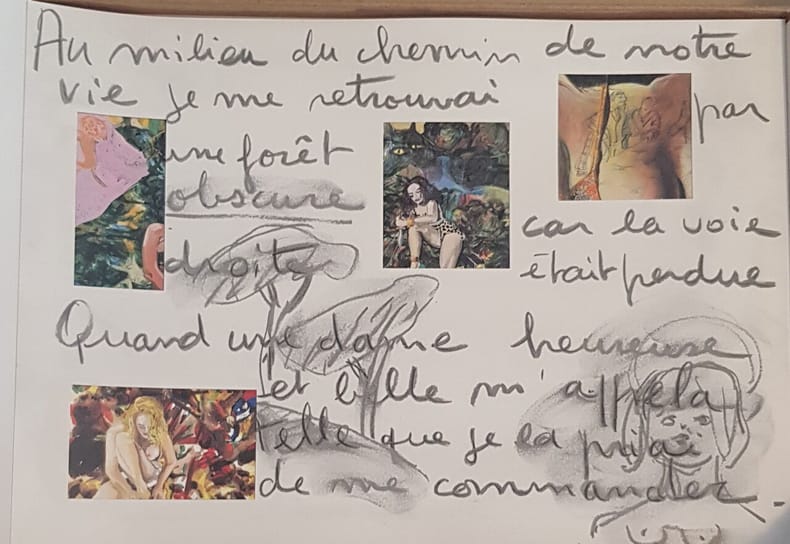 Au milieu du chemin de notre
vie je me retrouvai par
une forêt
obscure
car la voie
droite
était perdue
Quand une dame heureuse
et belle m'appela
telle que je la priai
de me commander.